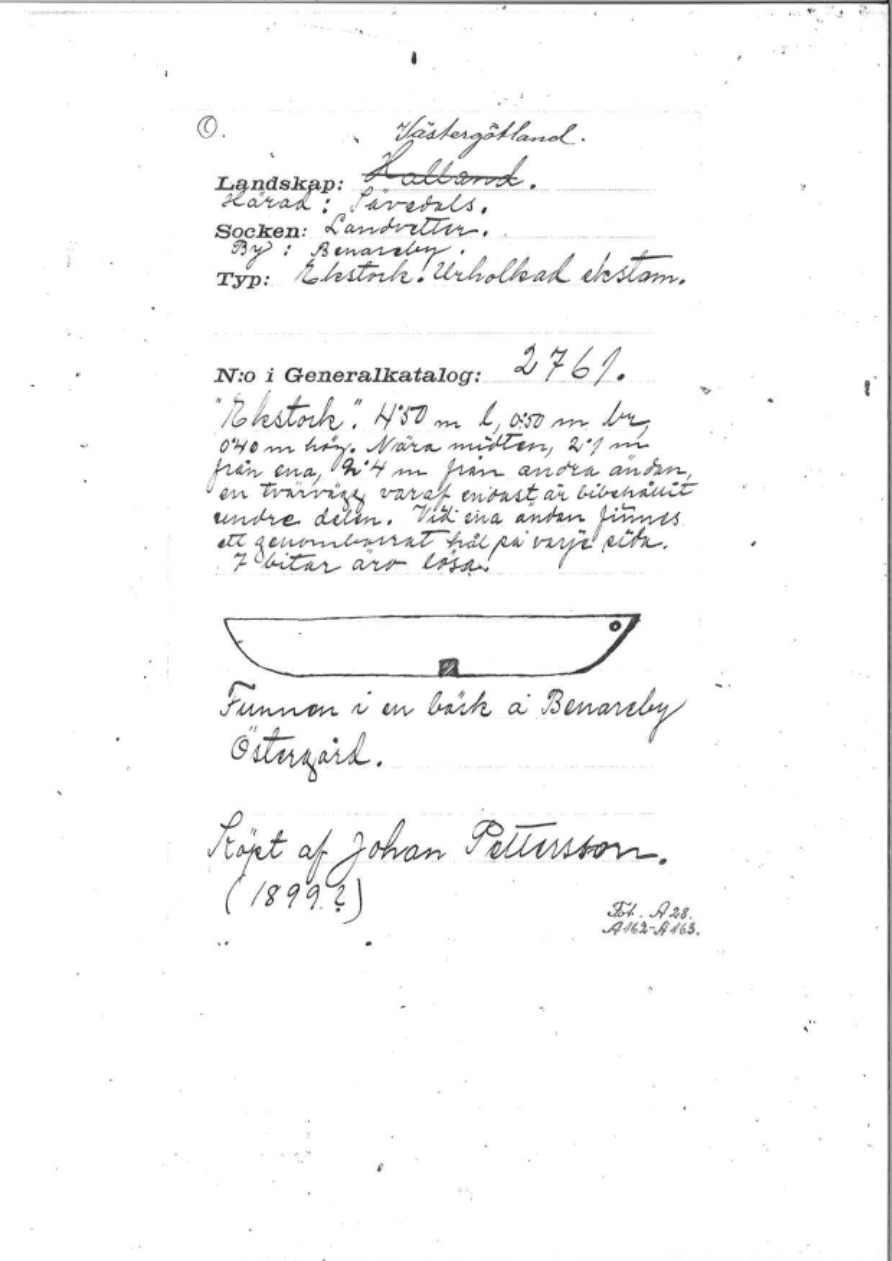 O.
Västergötland.
Landskap: Halland.
Härad: Sävedals.
Socken: Landvetter.
By: Benareby.
Typ: Ekstock. Urholkad ekstam.
N:o i Generalkatalog: 2761.
"Ekstock". 4'50 m l, 0'50 m br,
0'40 m hög. Nära midten, 2'1 m
från ena, 2'4 m från andra ändan,
en tvärvägg varaf endast är bibehållit
undre delen. Vid ena ändan finnes
ett genomborrat hål på varje sida.
7 bitar äro lösa.
Funnen i en bäck å Benareby
Östergård.
Köpt af Johan Pettersson.
(1899?)
Fot. A 28.
A162-A163.